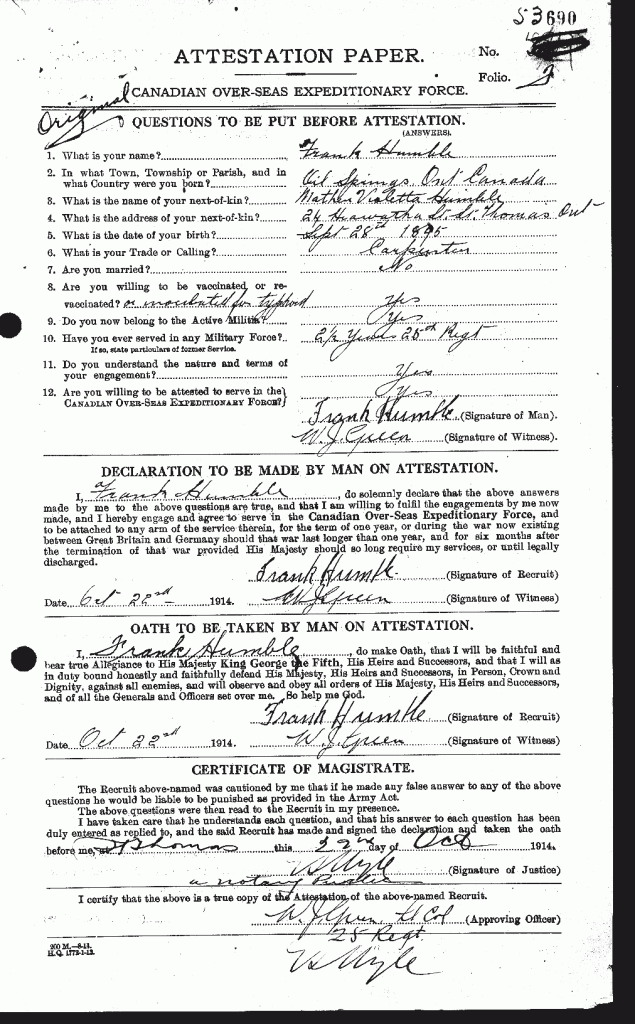 53690
ATTESTATION PAPER.
No.
Folio.
Original
CANADIAN OVER-SEAS EXPEDITIONARY FORCE.
QUESTIONS TO BE PUT BEFORE ATTESTATION.
(ANSWERS).
1. What is your name? Frank Humble
2. In what Town, Township or Parish, and in what Country were you born? Oil Springs Ont Canada
3. What is the name of your next-of-kin? Mother Violetta Humble
4. What is the address of your next-of-kin? 24 Hiawatha St. St. Thomas Ont
5. What is the date of your birth? Sept 28th 1895
6. What is your Trade or Calling? Carpenter
7. Are you married? No
8. Are you willing to be vaccinated or re-
vaccinated? or inoculated for typhoid Yes
9. Do you now belong to the Active Militia? Yes
10. Have you ever served in any Military Force? 2½ Years 25th Regt
If so, state particulars of former Service.
11. Do you understand the nature and terms of
your engagement? Yes
12. Are you willing to be attested to serve in the
CANADIAN OVER-SEAS EXPEDITIONARY FORCE? Yes
Frank Humble (Signature of Man).
W. J. Green (Signature of Witness).
DECLARATION TO BE MADE BY MAN ON ATTESTATION.
I, Frank Humble, do solemnly declare that the above answers
made by me to the above questions are true, and that I am willing to fulfil the engagements by me now
made, and I hereby engage and agree to serve in the Canadian Over-Seas Expeditionary Force, and
to be attached to any arm of the service therein, for the term of one year, or during the war now existing
between Great Britain and Germany should that war last longer than one year, and for six months after
the termination of that war provided His Majesty should so long require my services, or until legally
discharged.
Frank Humble (Signature of Recruit)
Date Oct 22nd 1914. W J Green (Signature of Witness)
OATH TO BE TAKEN BY MAN ON ATTESTATION.
I, Frank Humble, do make Oath, that I will be faithful and
bear true Allegiance to His Majesty King George the Fifth, His Heirs and Successors, and that I will as
in duty bound honestly and faithfully defend His Majesty, His Heirs and Successors, in Person, Crown and
Dignity, against all enemies, and will observe and obey all orders of His Majesty, His Heirs and Successors,
and of all the Generals and Officers set over me. So help me God.
Frank Humble (Signature of Recruit)
Date Oct 22nd 1914. W. J. Green (Signature of Witness)
CERTIFICATE OF MAGISTRATE.
The Recruit above-named was cautioned by me that if he made any false answer to any of the above
questions he would be liable to be punished as provided in the Army Act.
The above questions were then read to the Recruit in my presence.
I have taken care that he understands each question, and that his answer to each question has been
duly entered as replied to, and the said Recruit has made and signed the declaration and taken the oath
before me, at St Thomas this 22nd day of Oct 1914.
(Signature of Justice)
a notary Public
I certify that the above is a true copy of the Attestation of the above-named Recruit.
W. J. Green Lt Col (Approving Officer)
25 Regt.
200 M.—8-14.
H.Q. 1772-1-13.